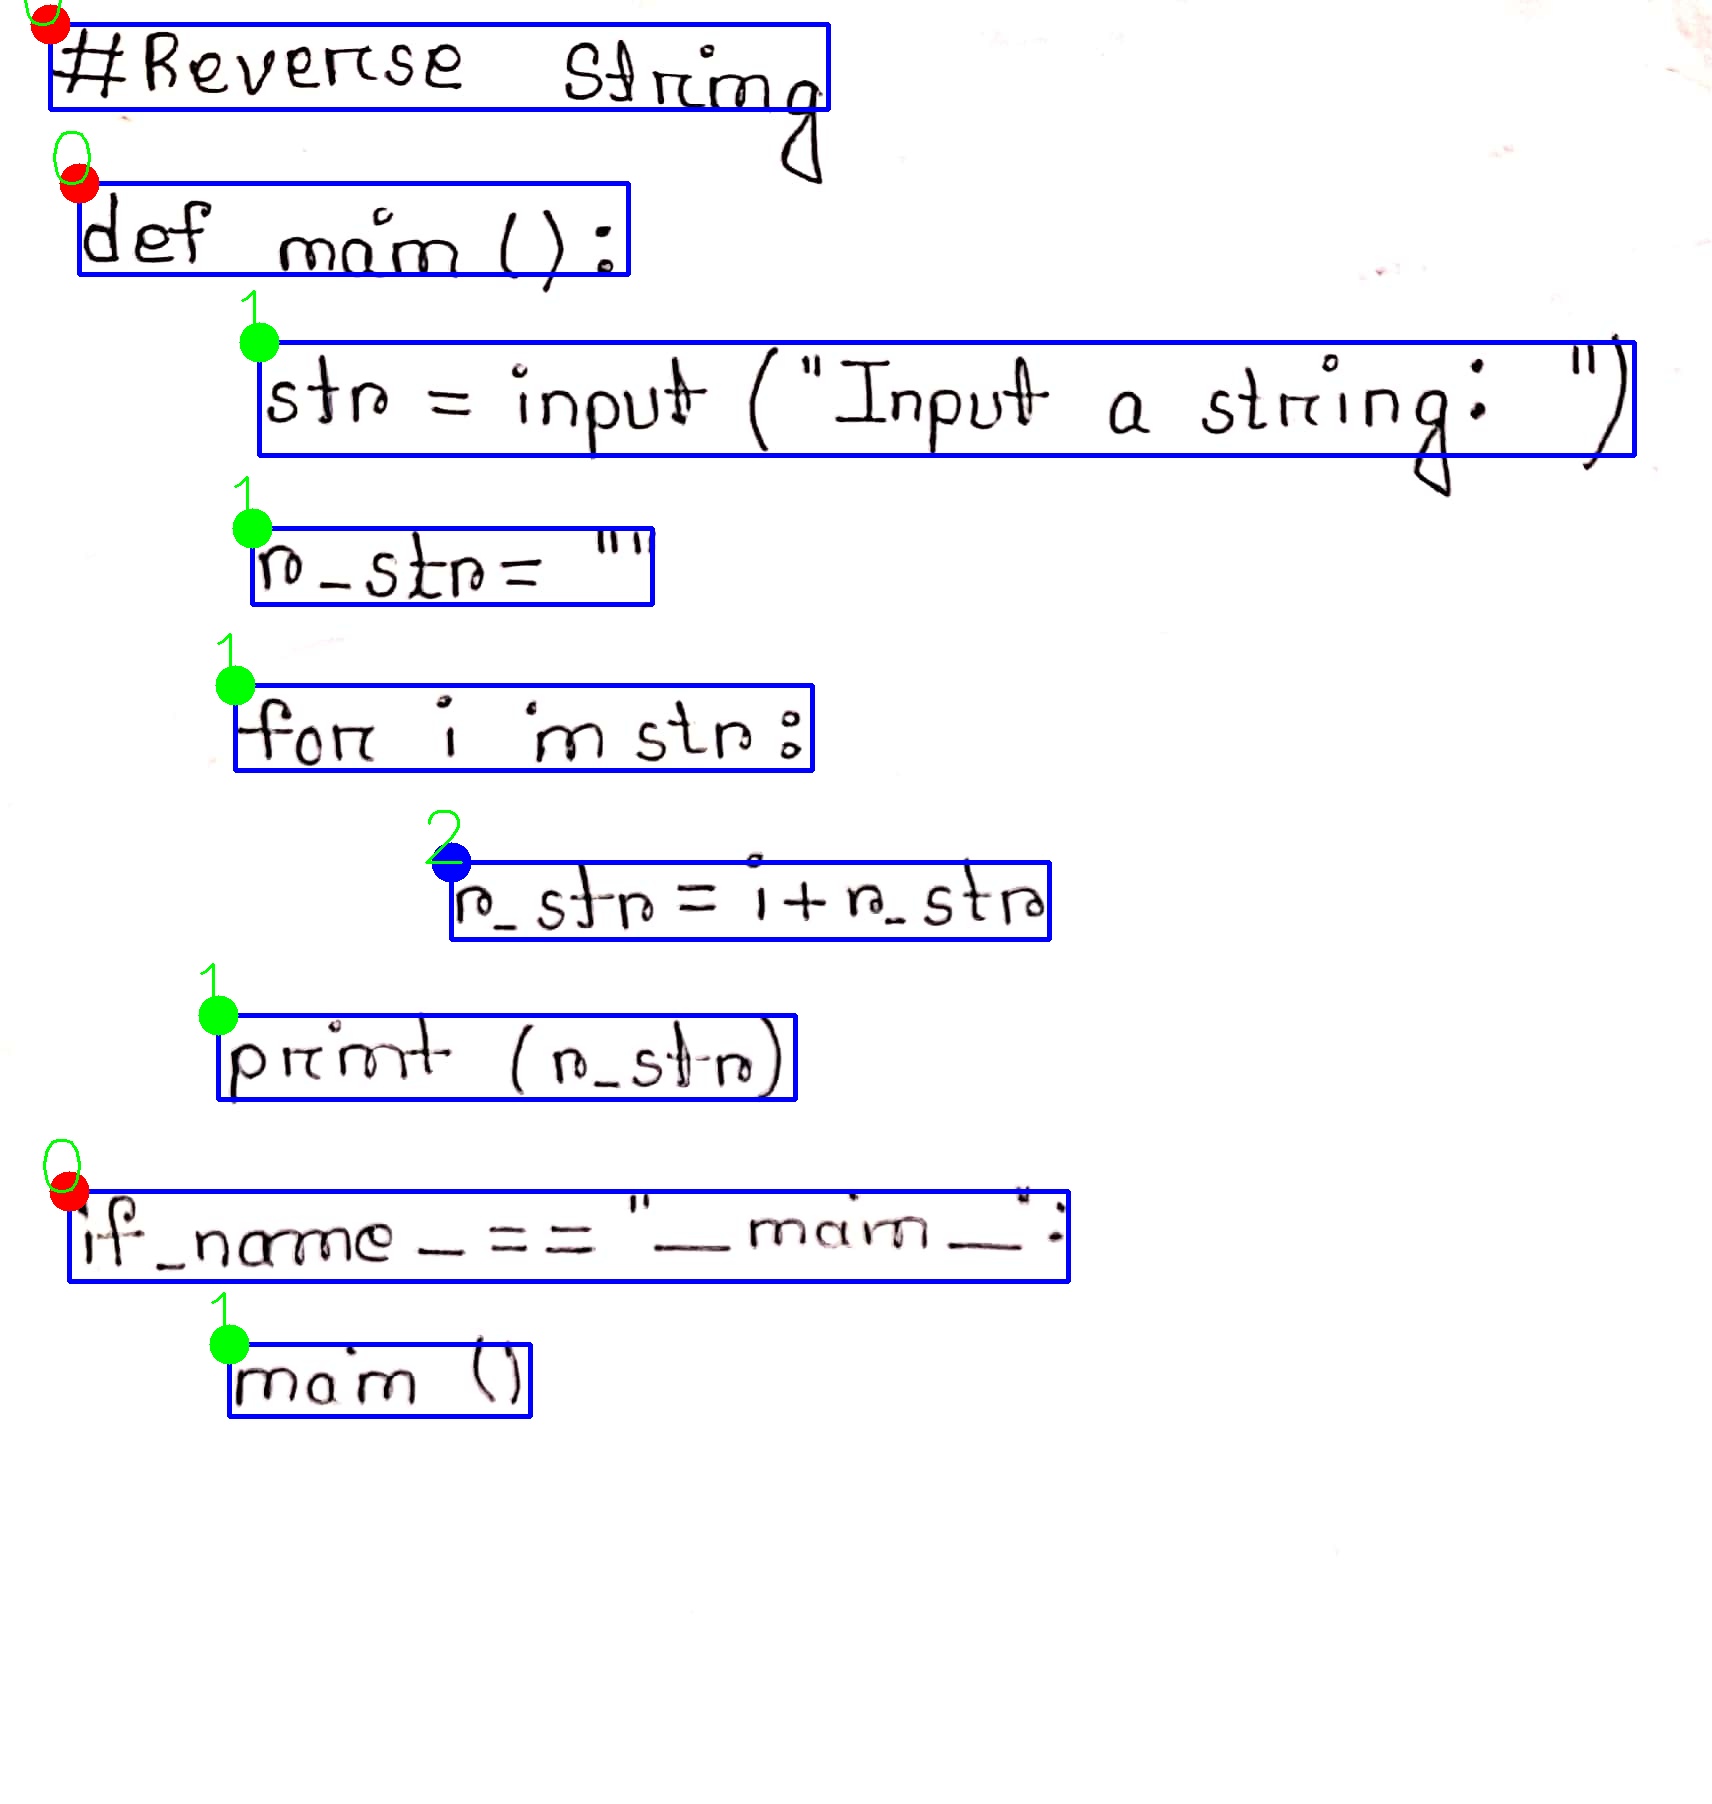 0
#Reverse String
0
def main ():
1
str = input ("Input a string: ")
1
r_str = ""
1
for i in str:
2
r_str = i + r_str
1
print (r_str)
0
if _name_ == "__main__":
1
main ()